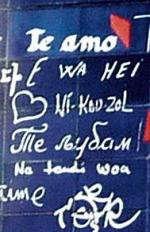 Te amo
WA HEI
Ni-Kou-Zol
Те љубам
Na tondi woa
time